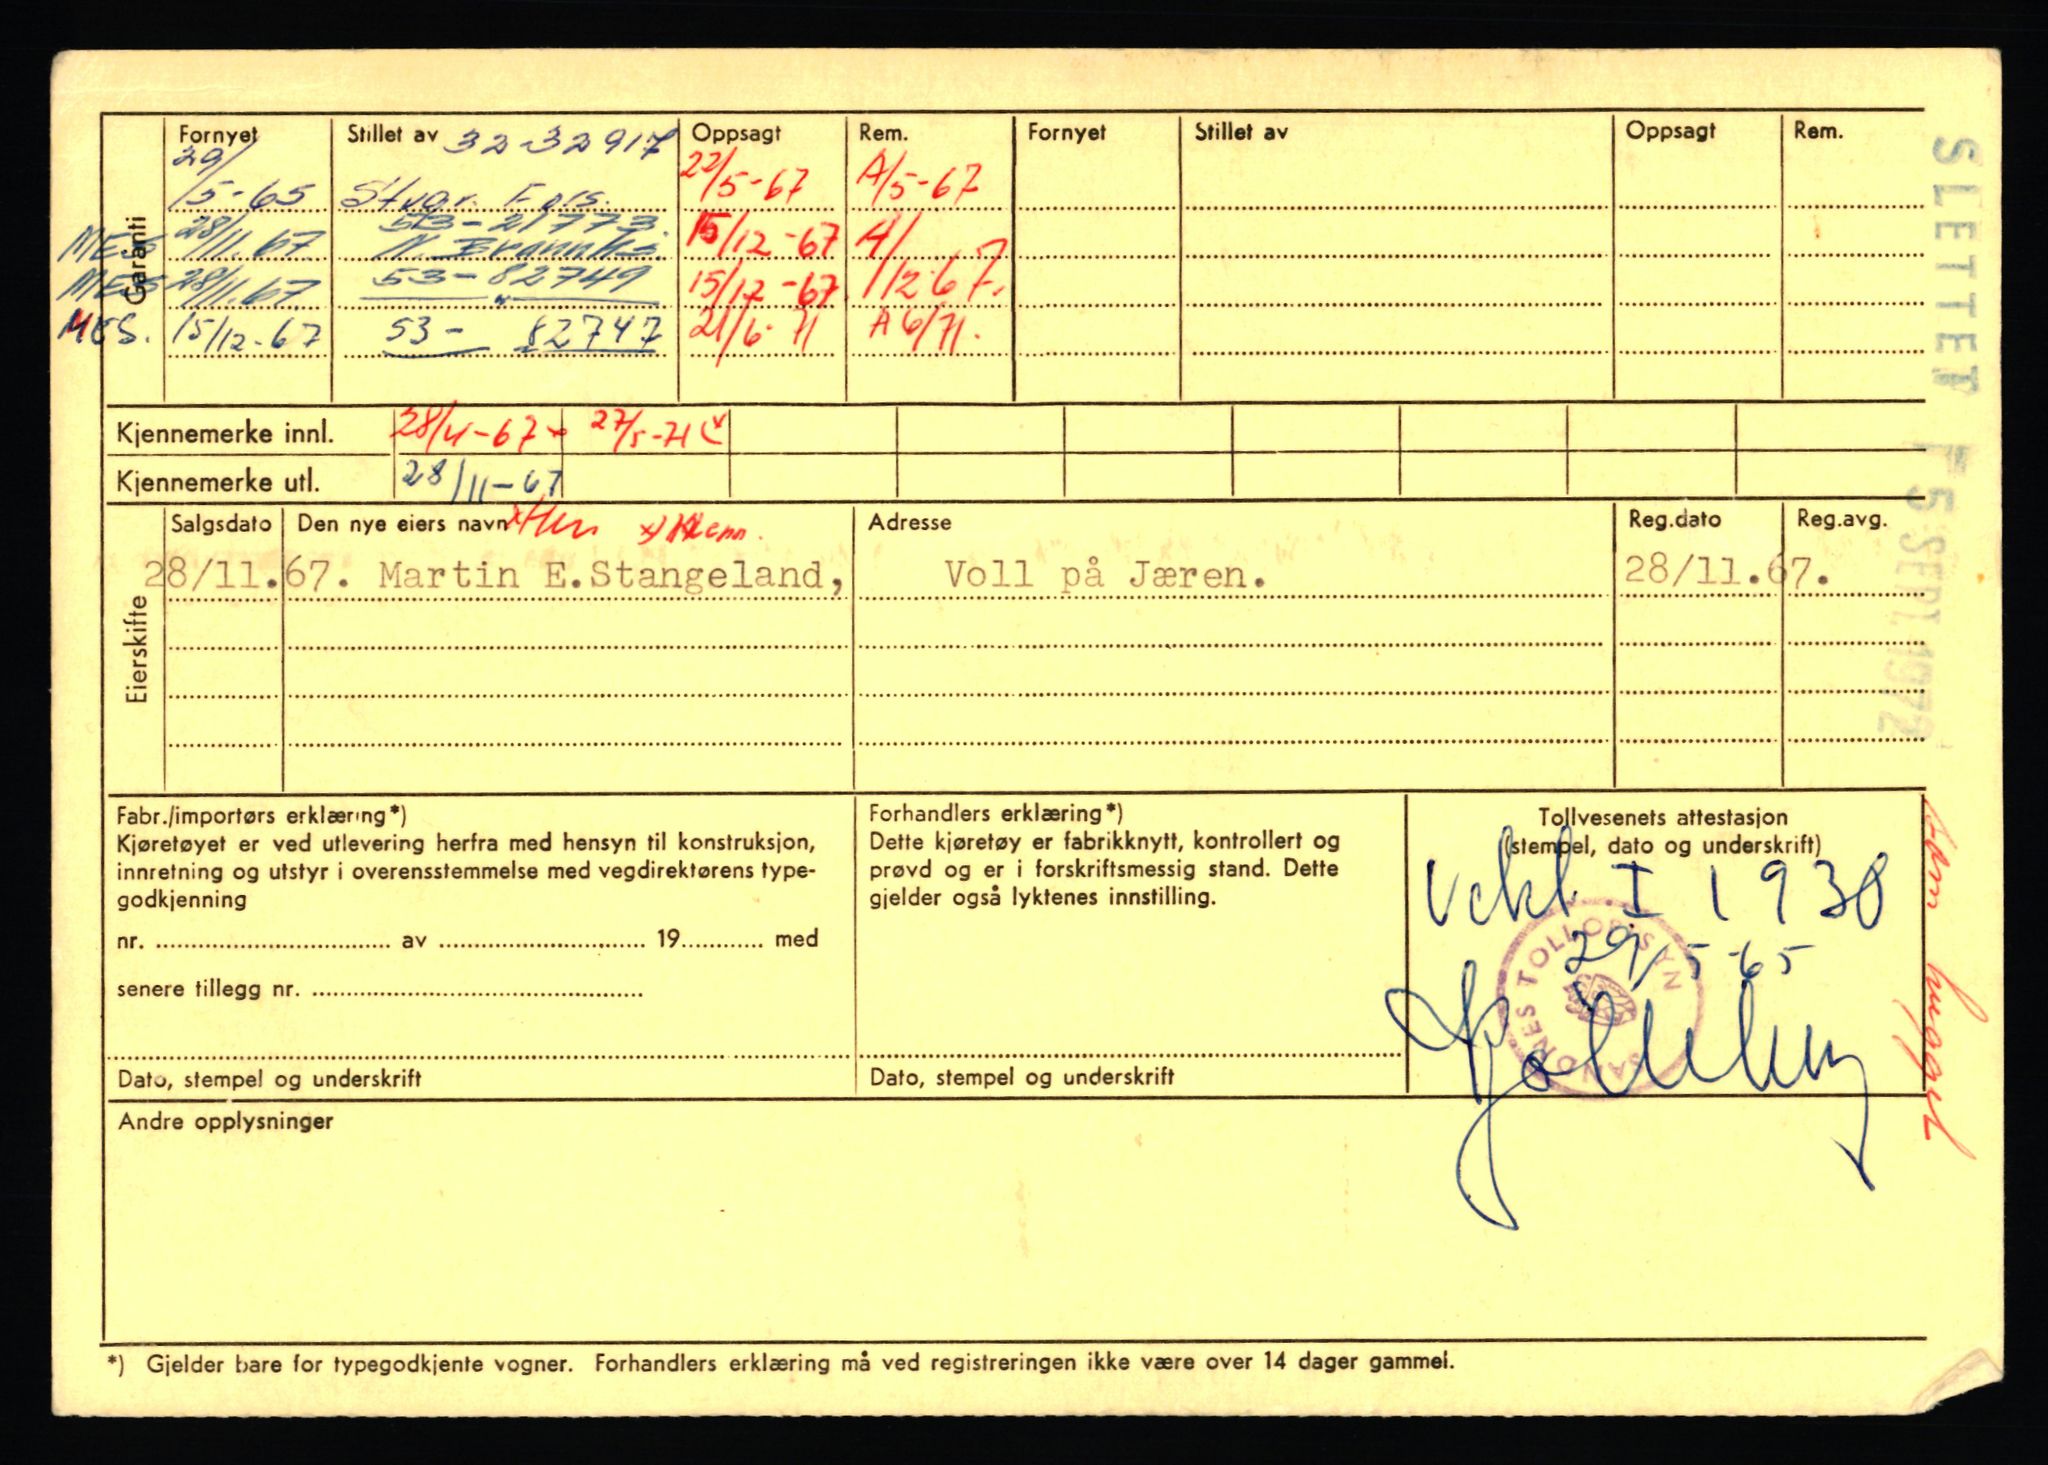 Fornyet Stillet av 32-32917 Oppsagt Rem. Fornyet Stillet av Oppsagt Rem.
29/5-65 Stvgr. Fors. 22/5-67 A/5-67
Garanti
MES 28/11.67 53-21773. 15/12-67 A/12.67.
MES 28/11.67 53-82749 15/12-67
MES. 15/12-67 53- 82747 21/6-71 A 6/71.
Kjennemerke innl. 28/11-67 27/5-71
Kjennemerke utl. 28/11-67
Eierskifte
Salgsdato Den nye eiers navn Adresse Reg.dato Reg.avg.
28/11.67. Martin E.Stangeland, Voll på Jæren. 28/11.67.
Fabr./importørs erklæring*)
Kjøretøyet er ved utlevering herfra med hensyn til konstruksjon,
innretning og utstyr i overensstemmelse med vegdirektørens type-
godkjenning
nr. av 19 med
senere tillegg nr.
Dato, stempel og underskrift
Forhandlers erklæring*)
Dette kjøretøy er fabrikknytt, kontrollert og
prøvd og er i forskriftsmessig stand. Dette
gjelder også lyktenes innstilling.
Dato, stempel og underskrift
Tollvesenets attestasjon
(stempel, dato og underskrift)
Vekt I 1930
29/5-65
SANDNES TOLLOPPSYN
Andre opplysninger
*) Gjelder bare for typegodkjente vogner. Forhandlers erklæring må ved registreringen ikke være over 14 dager gammel.
SLETTET 15 SEPT. 1972